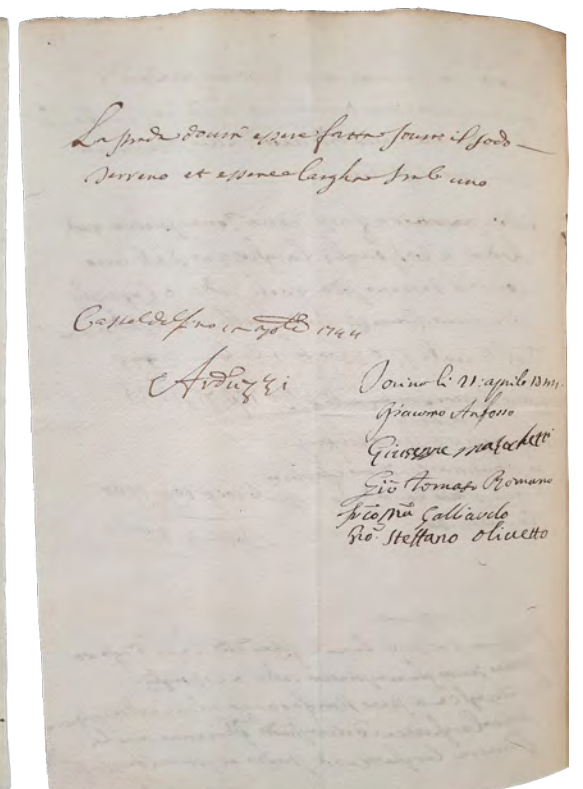 La strada dourà essere fatta soura il sodo
terreno et essere larga trab. uno
Casteldelfino 1744
Arduzzi
Torino li 21: aprile
Giacomo Anfosso
Giuseppe
Gio Tomaso Romano
Galliardo
Gio. Steffano Oliuetto